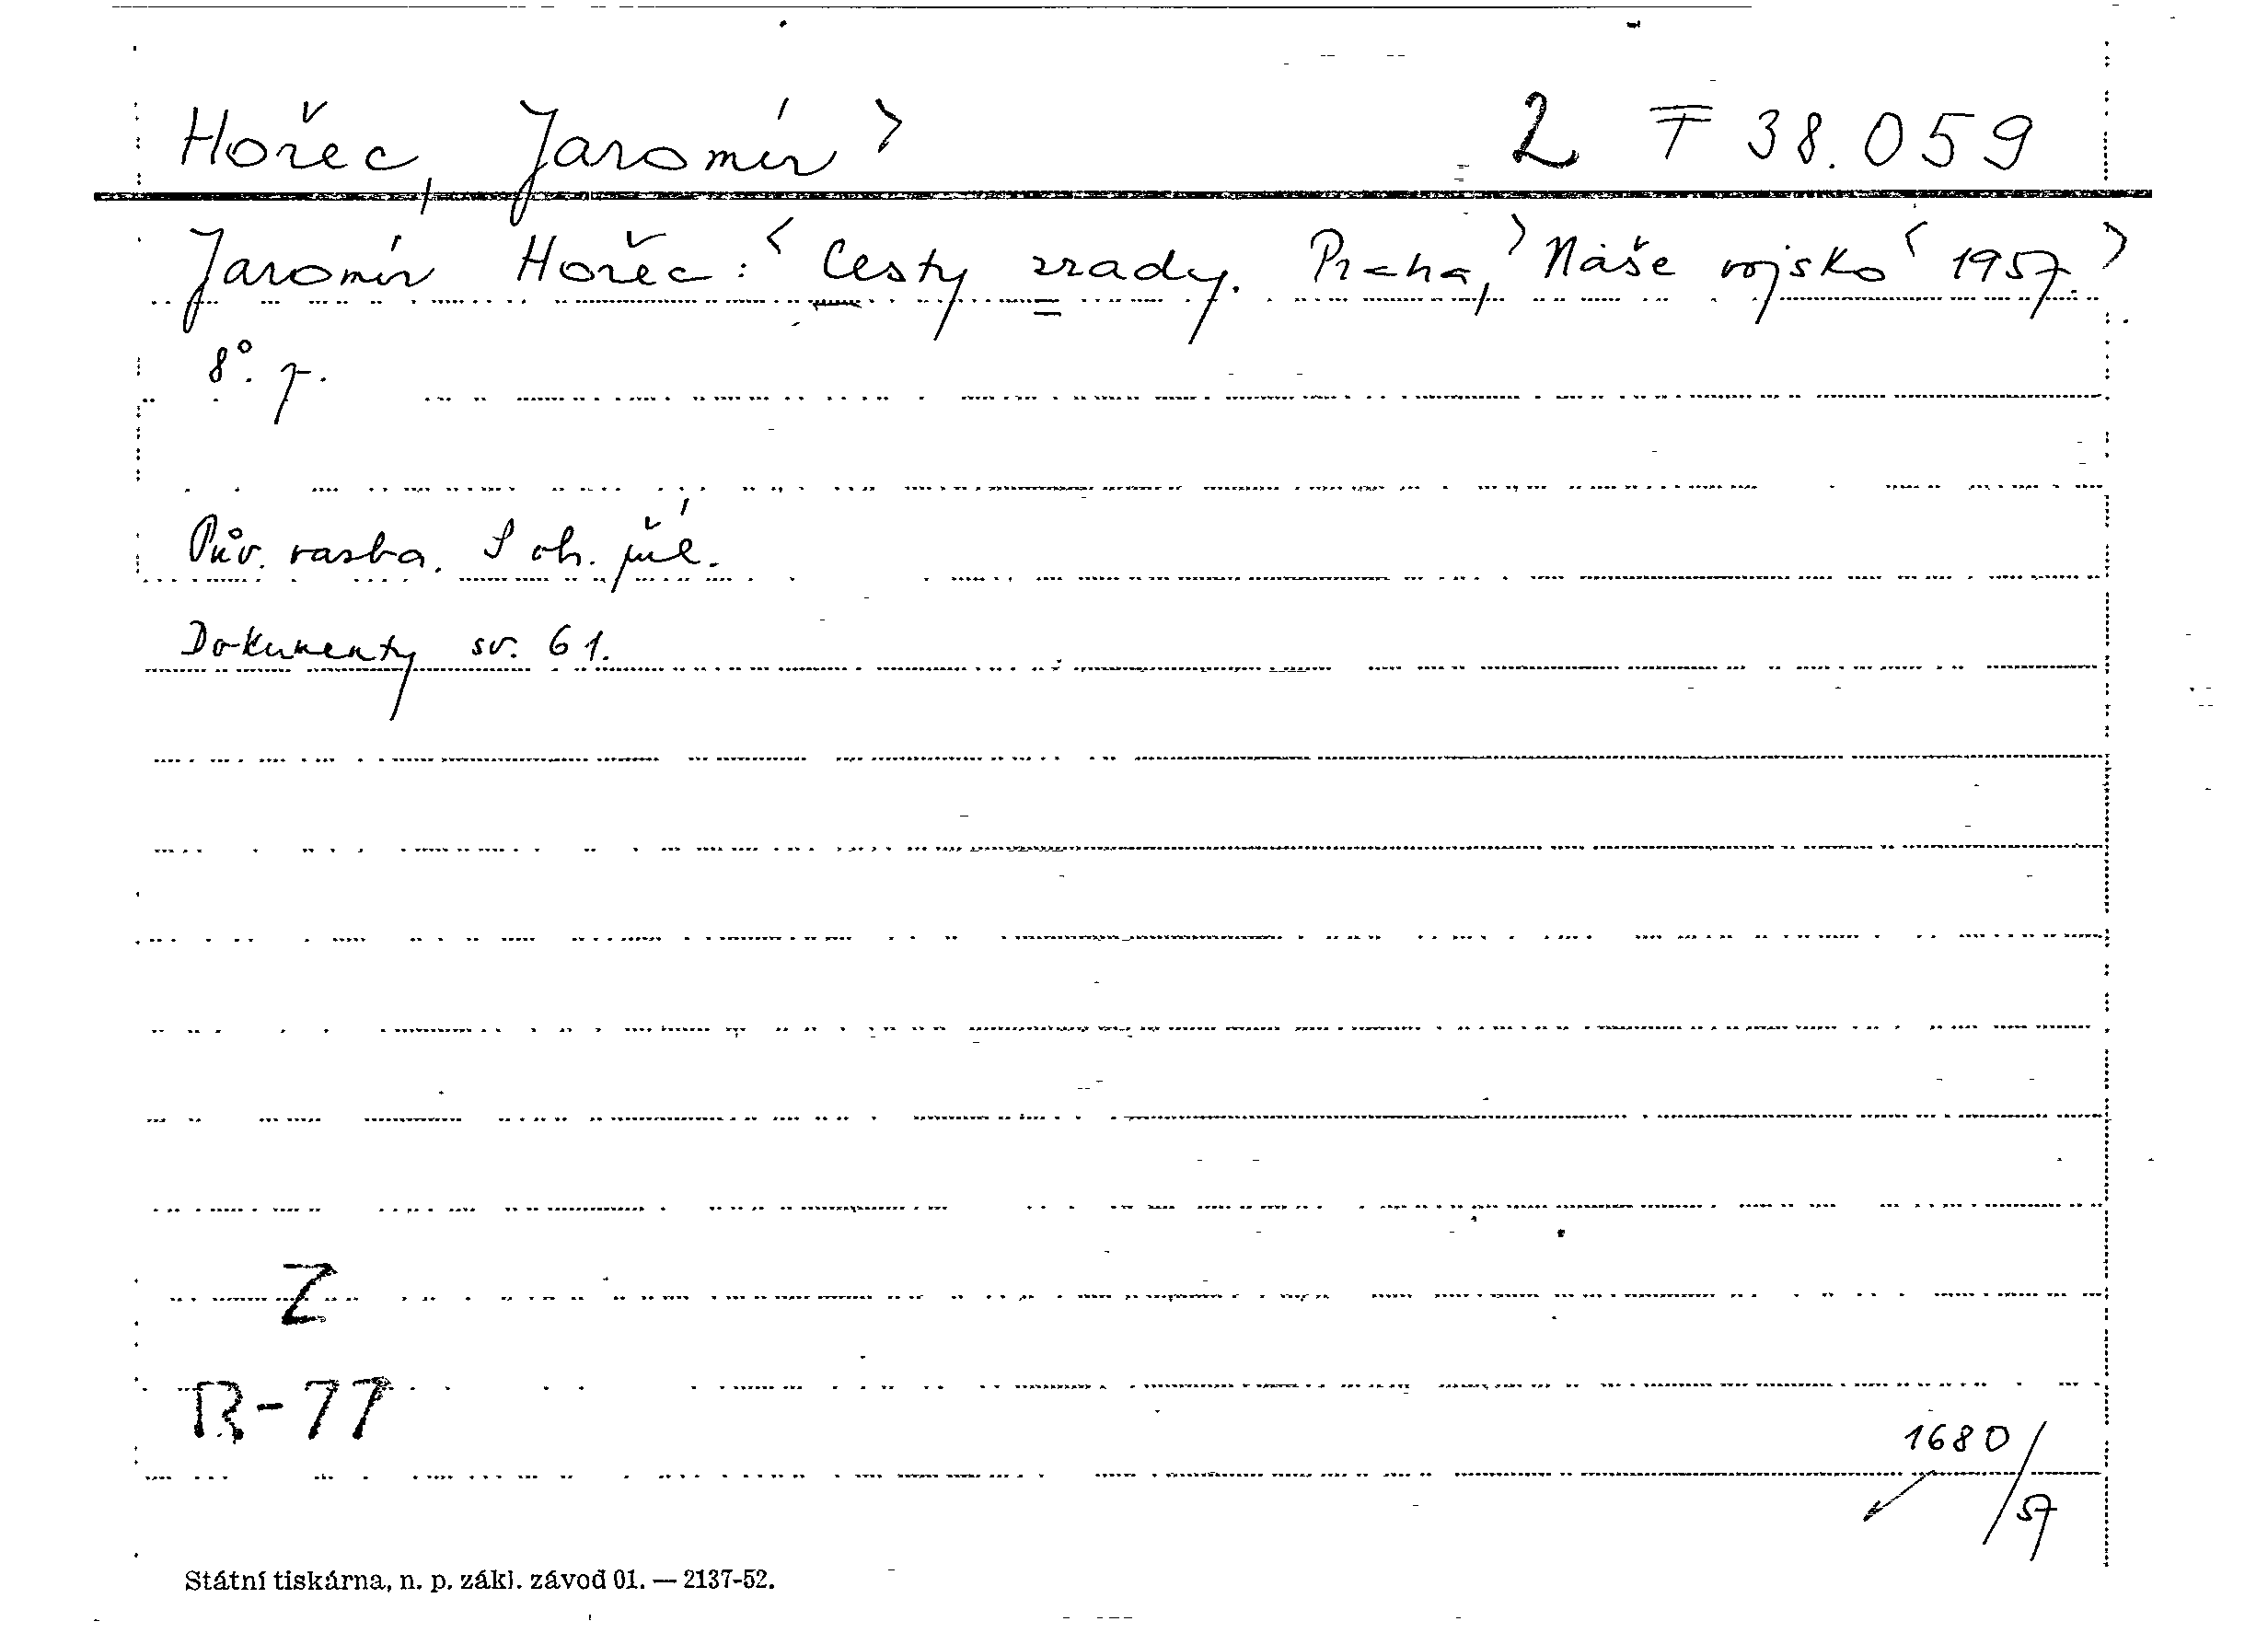 Hořec, Jaromír > 2 T 38.059
Jaromír Hořec: < Cesty zrady. Praha, > Naše vojsko < 1957. >
8°. p.
Pův. vazba. S ob. příl.
Dokumenty sv. 61.
Z
R-77
1680/57
Státní tiskárna, n. p. zákl. závod 01. — 2137-52.